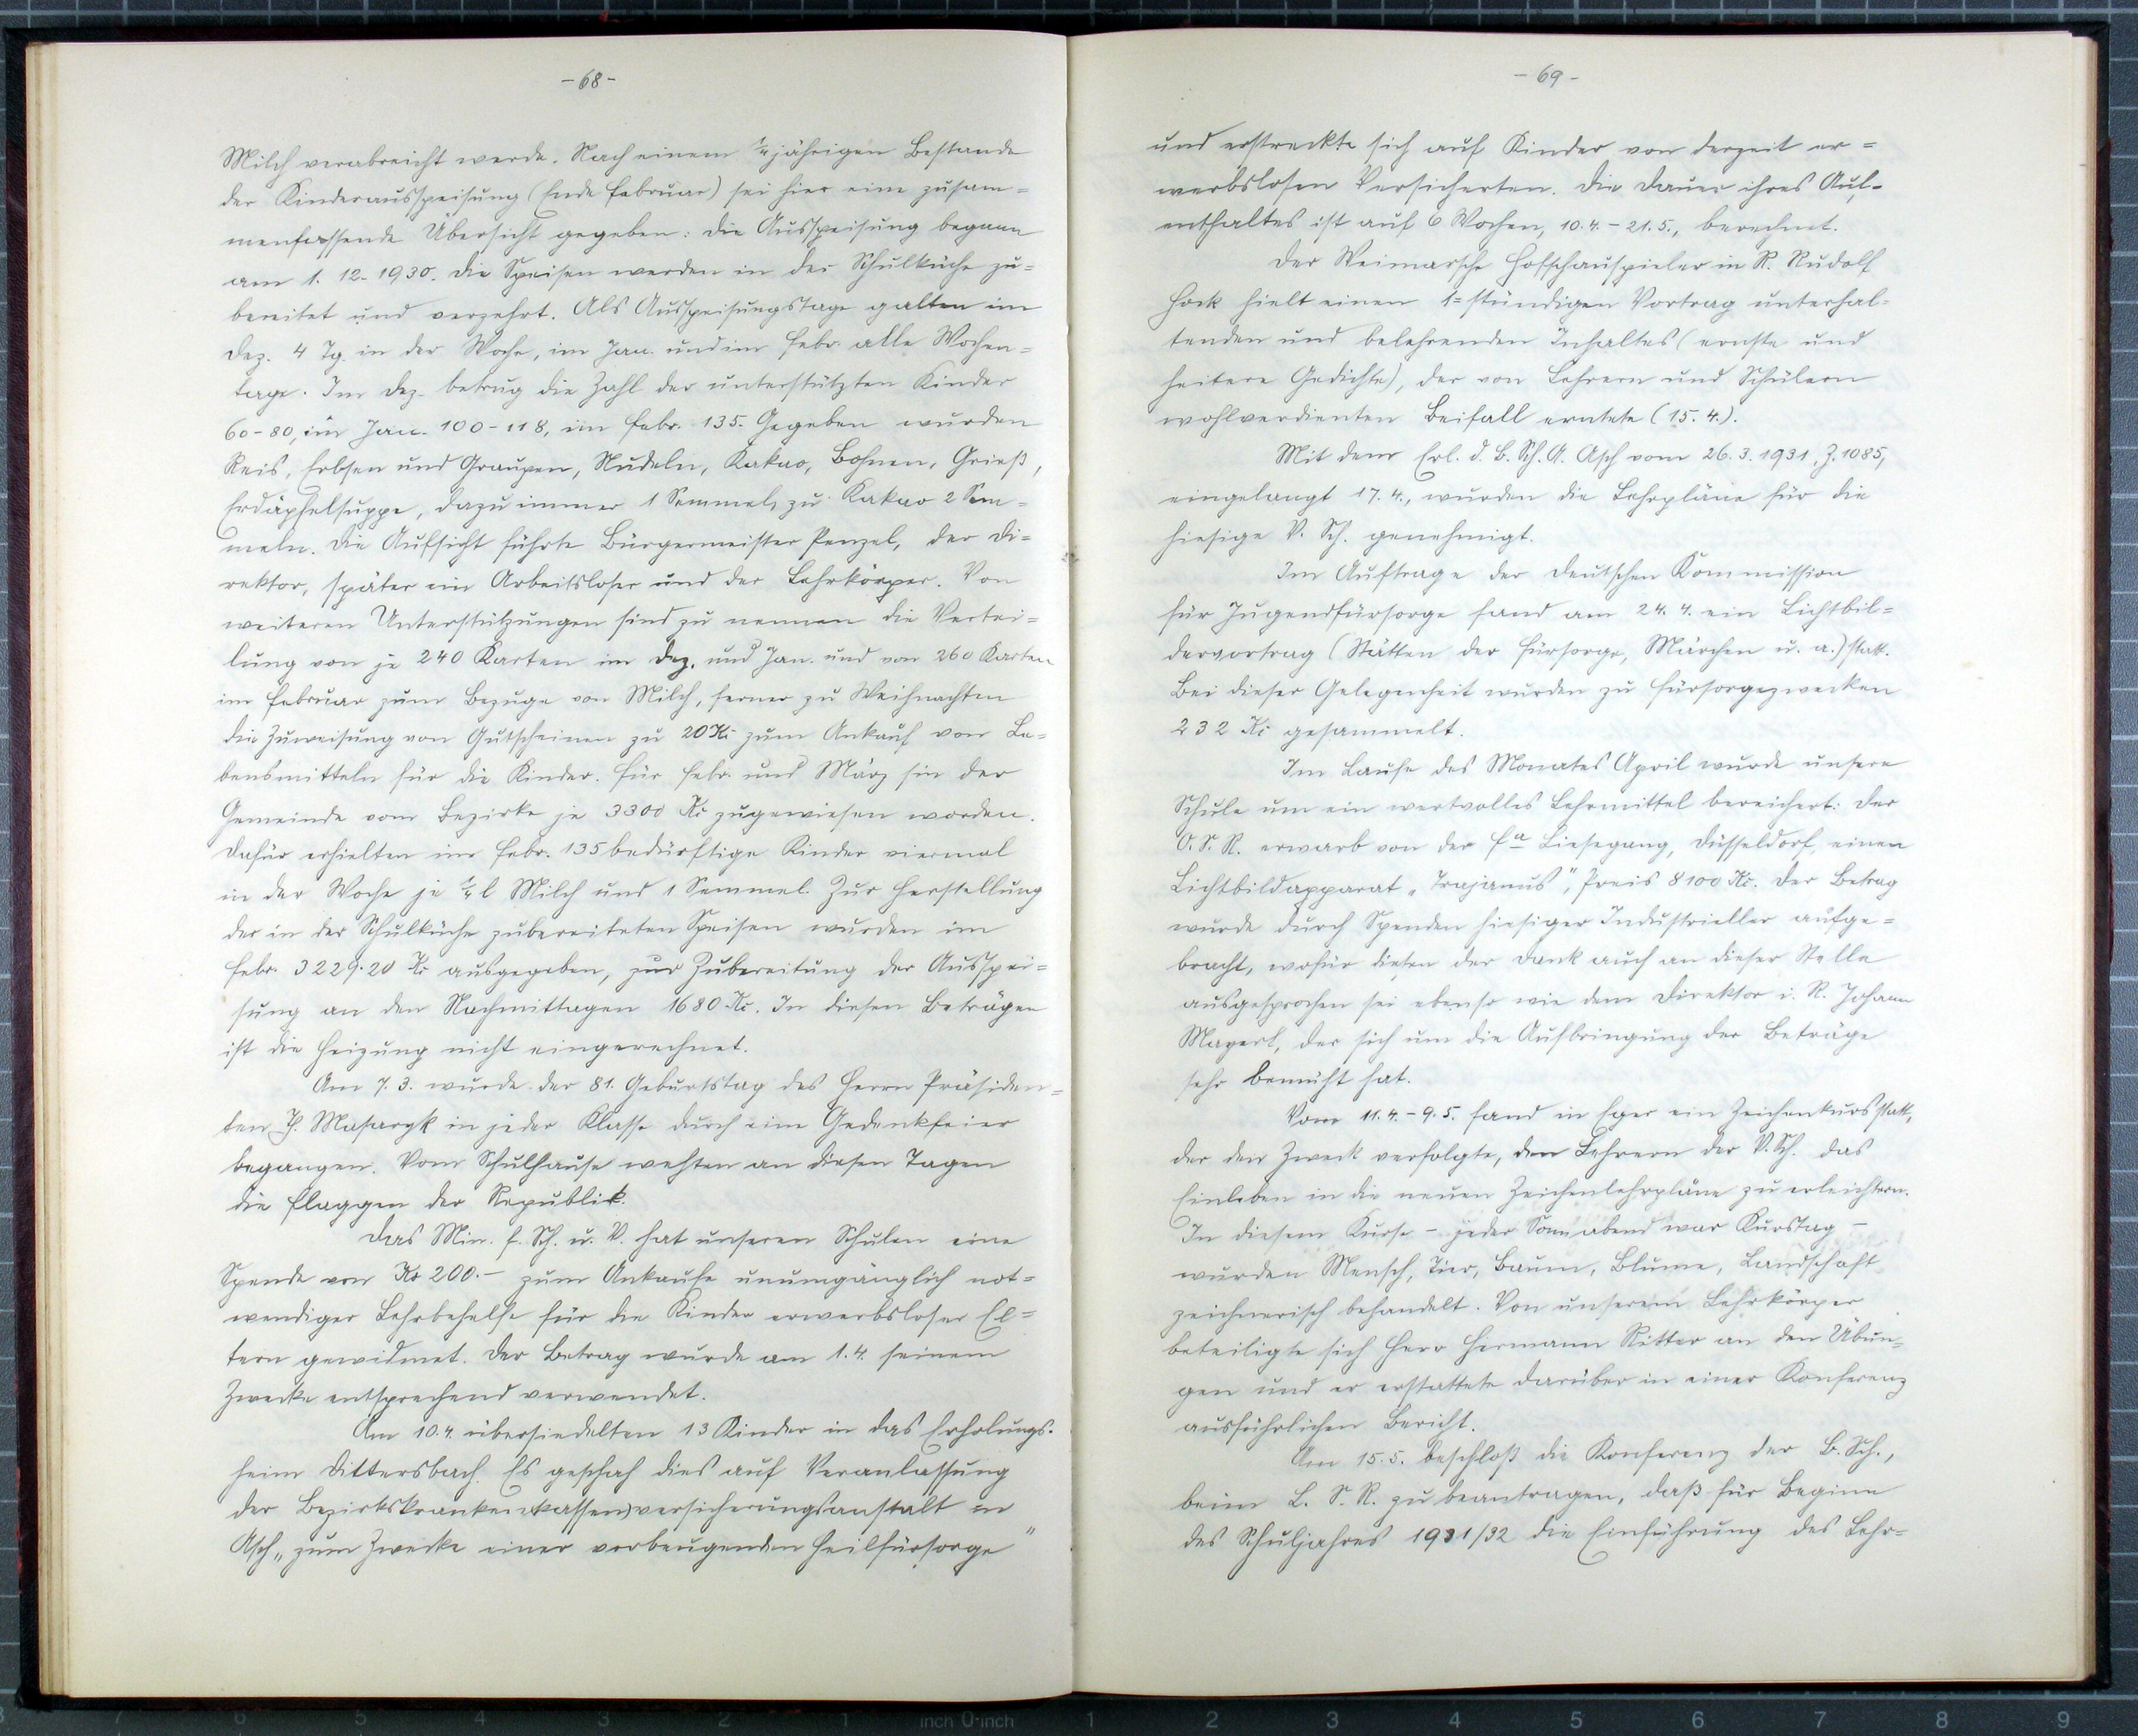 - 68 -
Milch verabreicht werde. Nach einem ¼ jährigen Bestande
der Kinderausspeisung (Ende Februar) sei hier eine zusam=
menfassende Übersicht gegeben: Die Ausspeisung begann
am 1. 12. 1930. Die Speisen werden in der Schulküche zu=
bereitet und verzehrt. Als Ausspeisungstage galten im
Dez. 4 Tg. in der Woche, im Jan. und im Febr. alle Wochen=
tage. Im Dez. betrug die Zahl der unterstützten Kinder
60-80, im Jan. 100-118, im Febr. 135. Gegeben wurden
Reis, Erbsen und Graupen, Nudeln, Kakao, Bohnen, Grieß,
Erdäpfelsuppe, dazu immer 1 Semmel, zu Kakao 2 Sem=
meln. Die Aufsicht führte Bürgermeister Penzel, der Di=
rektor, später ein Arbeitsloser und der Lehrkörper. Von
weiteren Unterstützungen sind zu nennen die Vertei=
lung von je 240 Karten im Dez. und Jan. und von 260 Karten
im Februar zum Bezuge von Milch, ferner zu Weihnachten
die Zuweisung von Gutscheinen zu 20 Kč zum Ankauf von Le=
bensmitteln für die Kinder. Für Febr. und März sin der
Gemeinde vom Bezirke je 3300 Kč zugewiesen worden.
Dafür erhielten im Febr. 135 bedürftige Kinder viermal
in der Woche je ¼ l Milch und 1 Semmel. Zur Herstellung
der in der Schulküche zubereiteten Speisen wurden im
Febr. 3229.20 Kč ausgegeben, zur Zubereitung der Ausspei=
sung an den Nachmittagen 1680 Kč. In diesen Beträgen
ist die Heizung nicht eingerechnet.
Am 7. 3. wurde der 81. Geburtstag des Herrn Präsiden=
ten Masaryk in jeder Klasse durch eine Gedenkfeier
begangen. Vom Schulhause wehten an diesen Tagen
die Flaggen der Republik.
Das Min. f. Sch. u. V. hat unseren Schulen eine
Spende von Kč 200.- zum Ankaufe unumgänglich not=
wendiger Lehrbehelfe für die Kinder erwerbsloser El=
tern gewidmet. Der Betrag wurde am 1. 4. seinem
Zwecke entsprechend verwendet.
Am 10. 4. übersiedelten 13 Kinder in das Erholungs-
heim Dittersbach. Es geschah dies auf Veranlassung
der Bezirkskranken(kassen)versicherungsanstalt in
Asch „zum Zwecke einer vorbeugenden Heilfürsorge"
- 69 -
und erstreckte sich auf Kinder von derzeit er=
werbslosen Versicherten. Die Dauer ihres Auf=
enthaltes ist auf 6 Wochen, 10. 4. - 21. 5., berechnet.
Der Weimarsche Hofschauspieler in R. Rudolf
Hock hielt einen 1=stündigen Vortrag unterhal=
tenden und belehrenden Inhaltes (ernste und
heitere Gedichte), der von Lehrern und Schülern
wohlverdienten Beifall erntete (15. 4.).
Mit dem Erl. d. B. Sch. A. Asch vom 26. 3. 1931, Z. 1085,
eingelangt 17. 4., wurden die Lehrpläne für die
hiesige V. Sch. genehmigt.
Im Auftrage der Deutschen Kommission
für Jugendfürsorge fand am 24. 4. ein Lichtbil=
dervortrag (Stätten der Fürsorge, Märchen u. a.) statt.
Bei dieser Gelegenheit wurden zu Fürsorgezwecken
232 Kč gesammelt.
Im Laufe des Monates April wurde unsere
Schule um ein wertvolles Lehrmittel bereichert: Der
O. S. R. erwarb von der Fa Liesegang, Düsseldorf, einen
Lichtbildapparat „Trajanus", Preis 8100 Kč. Der Betrag
wurde durch Spenden hiesiger Industrieller aufge=
bracht, wofür diesen der Dank auch an dieser Stelle
ausgesprochen sei ebenso wie dem Direktor i. R. Johann
Mayerl, der sich um die Aufbringung der Beträge
sehr bemüht hat.
Vom 11. 4. - 9. 5. fand in Eger ein Zeichenkurs statt,
der den Zweck verfolgte, den Lehrern der V. Sch. das
Einleben in die neuen Zeichenlehrpläne zu erleichtern.
In diesem Kurse - jeder Sonnabend war Kurstag -
wurden Mensch, Tier, Baum, Blume, Landschaft
zeichnerisch behandelt. Von unserem Lehrkörper
beteiligte sich Herr Hermann Ritter an den Übun=
gen und er erstattete darüber in einer Konferenz
ausführlichen Bericht.
Am 15. 5. beschloß die Konferenz der B. Sch.,
beim L. S. R. zu beantragen, daß für Beginn
des Schuljahres 1931/32 die Einführung des Lehr=